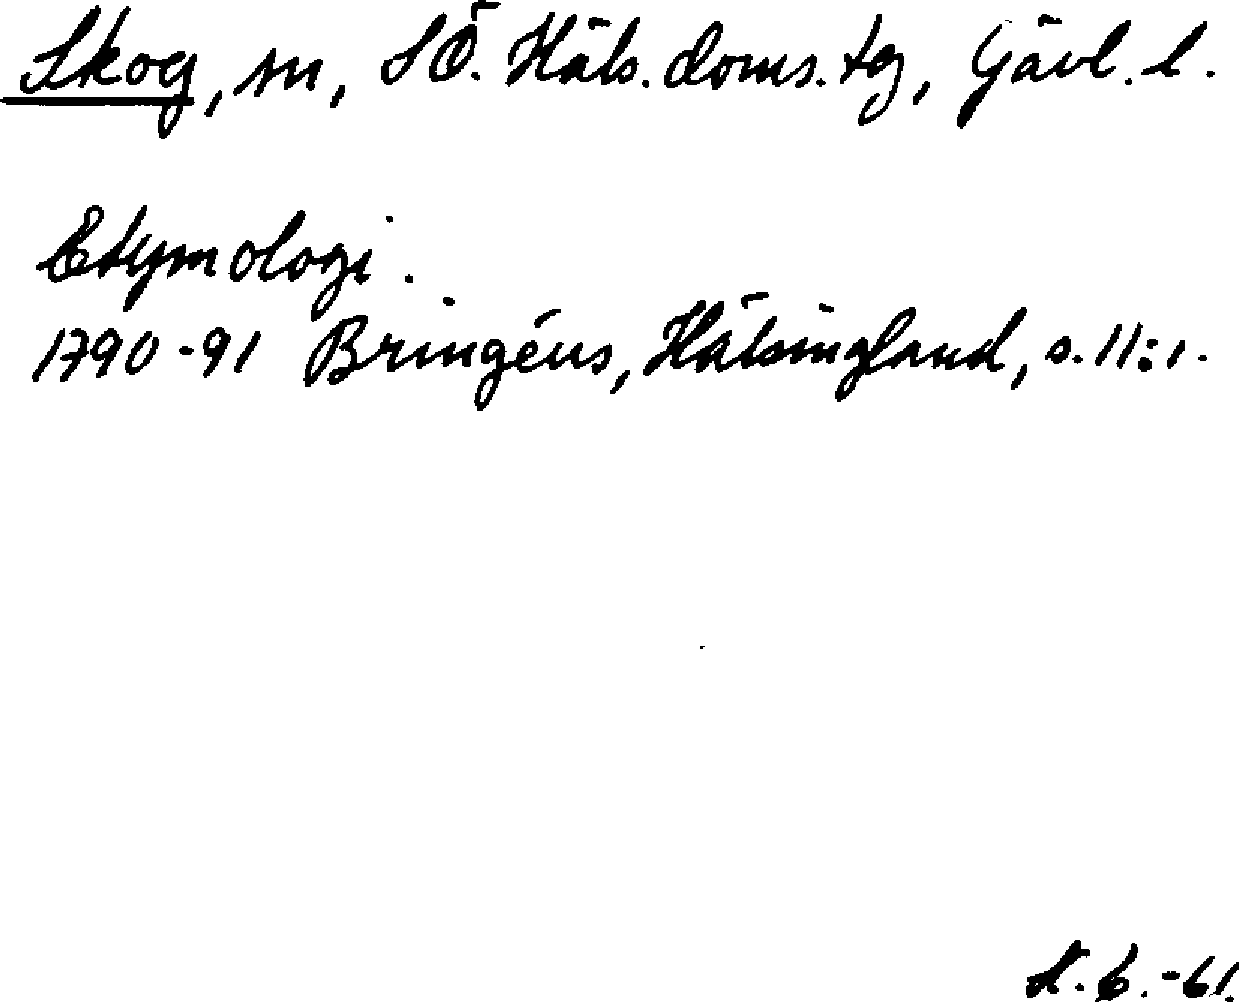 Skog, sn, SÖ. Häls. doms. tg, Gävl. l.
Etymologi.
1790-91 Bringéus, Hälsingland, s. 11:1.
S. B. -61.